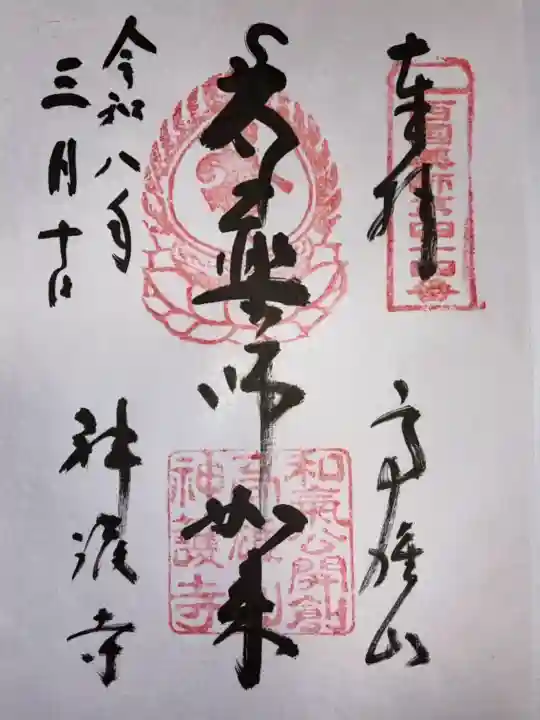 奉拝
高雄山
薬師如来
令和八年
三月十日
神護寺
和氣公開創
高雄山
神護寺